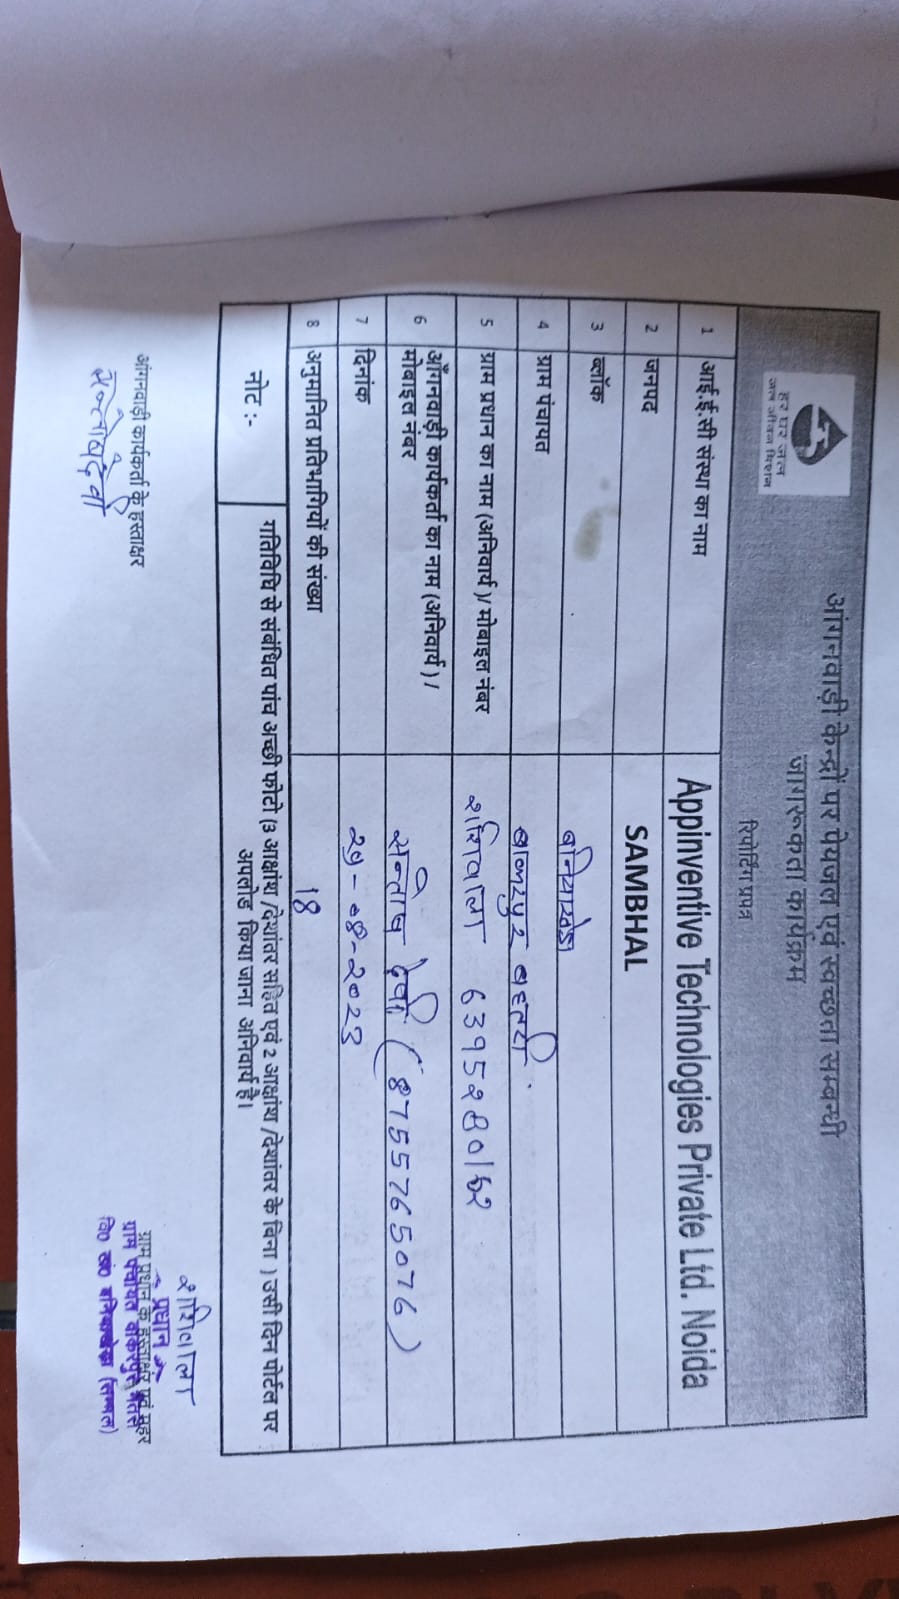 हर घर जल
जल जीवन मिशन
आंगनवाड़ी केन्द्रों पर पेयजल एवं स्वच्छता सम्बन्धी
जागरूकता कार्यक्रम
रिपोर्टिंग प्रपत्र
1 आई.ई.सी संस्था का नाम Appinventive Technologies Private Ltd. Noida
2 जनपद SAMBHAL
3 ब्लॉक बनियाखेडा
4 ग्राम पंचायत
5 ग्राम प्रधान का नाम (अनिवार्य)/ मोबाइल नंबर शशिवाला
6 आँगनवाड़ी कार्यकर्ता का नाम (अनिवार्य) / सन्तोष देवी (8755765076)
मोबाइल नंबर
7 दिनांक २9-०8-२०२३
8 अनुमानित प्रतिभागियों की संख्या 18
नोट :- गतिविधि से संबंधित पांच अच्छी फोटो (3 आक्षांश /देशांतर सहित एवं 2 आक्षांश /देशांतर के बिना ) उसी दिन पोर्टल पर
अपलोड किया जाना अनिवार्य है।
आंगनवाड़ी कार्यकर्ता के हस्ताक्षर
सन्तोष देवी
शशिवाला
ग्राम प्रधान के हस्ताक्षर एवं मुहर
प्रधान
ग्राम पंचायत
वि० खं० बनियाखेडा (सम्भल)